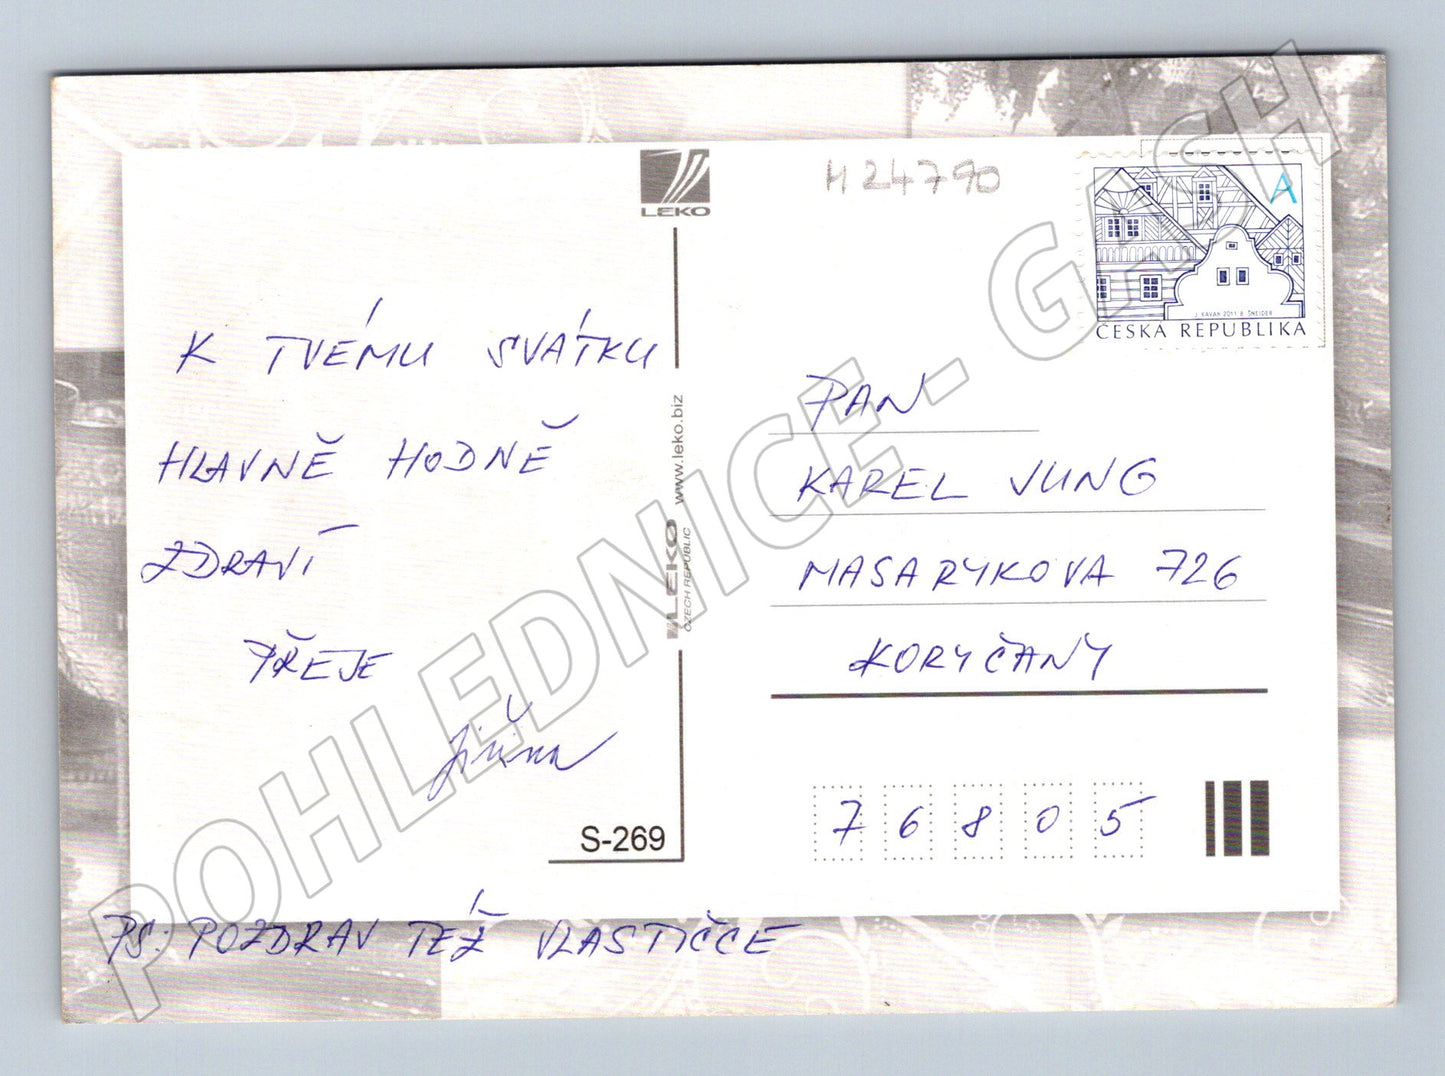 LEKO
M 24790
A
J. KAVAN 2011 B. ŠNEIDER
ČESKÁ REPUBLIKA
K TVÉMU SVÁTKU
HLAVNĚ HODNĚ
ZDRAVÍ
PŘEJE
Jiřina
S-269
PS: POZDRAV TÉŽ VLASTIČCE
LEKO www.leko.biz
CZECH REPUBLIC
PAN
KAREL JUNG
MASARYKOVA 726
KORYČANY
76805
POHLEDNICE - GASH